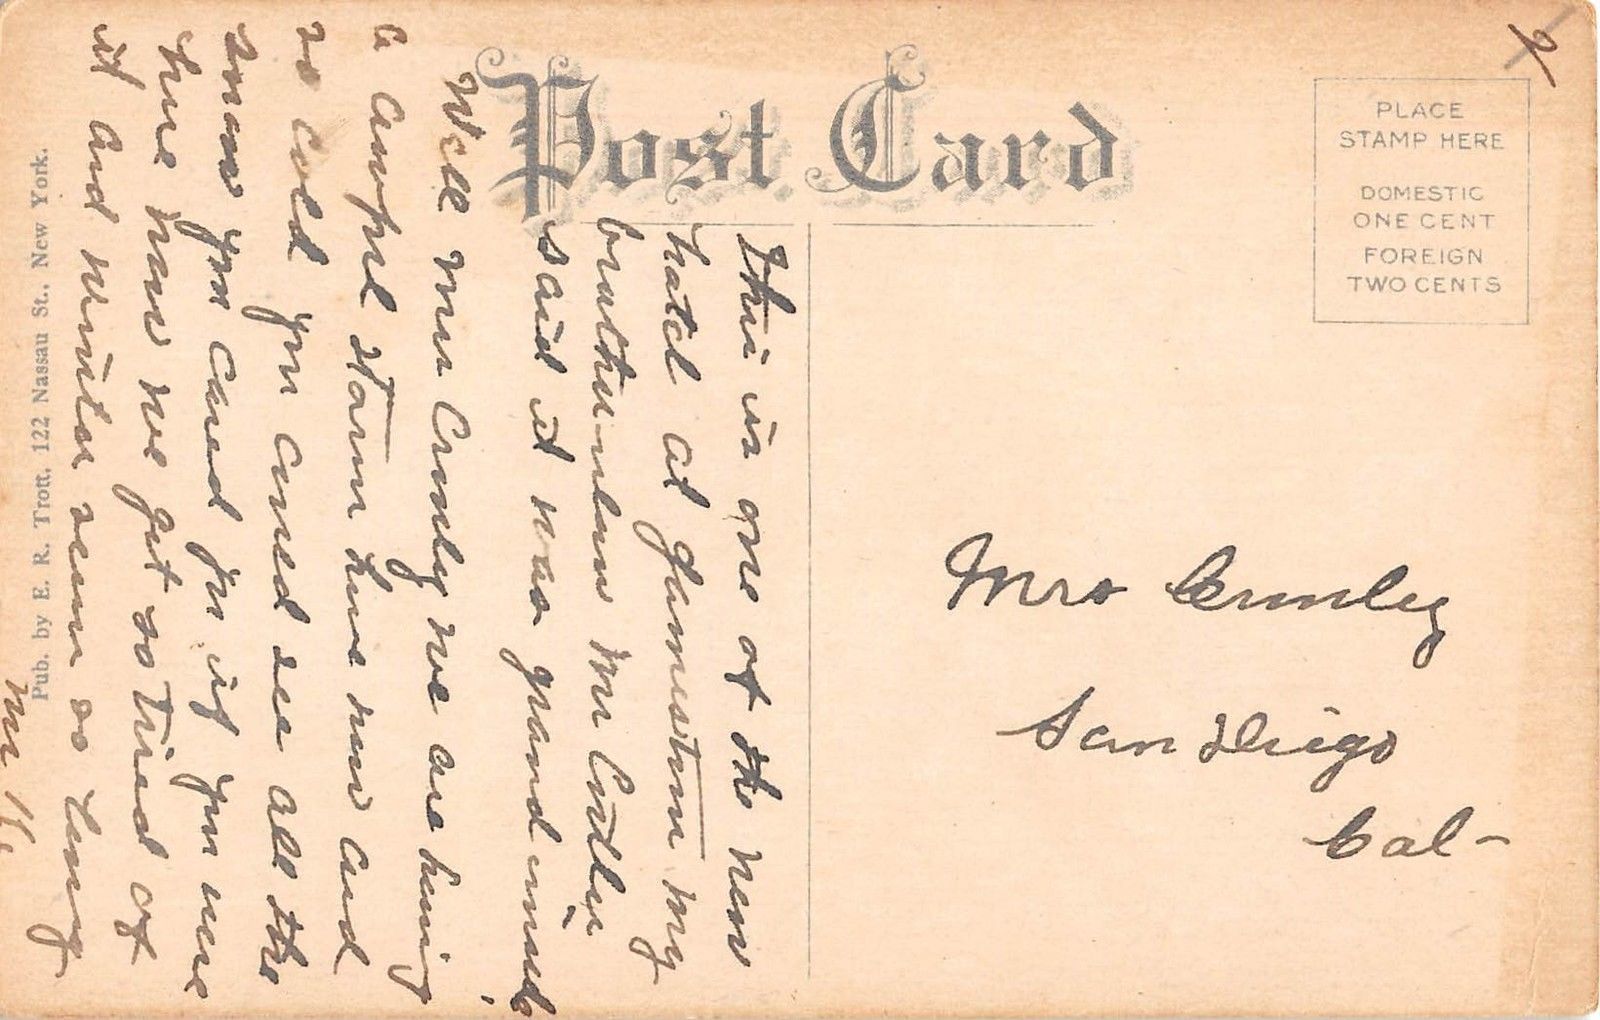 Post Card
PLACE
STAMP HERE
DOMESTIC
ONE CENT
FOREIGN
TWO CENTS
This is one of the new
hotel at Jamestown my
brotherinlaw Mr
said it was grand inside
Well Mrs Crumley we are having
a awful storm here now and
so cold you cared see all the
snow you cared for if you were
here now we get so tired of
it and winter seem so long
Mr K.
Mrs Crumley
San Diego
Cal-
Pub. by E. R. Trott, 122 Nassau St., New York.